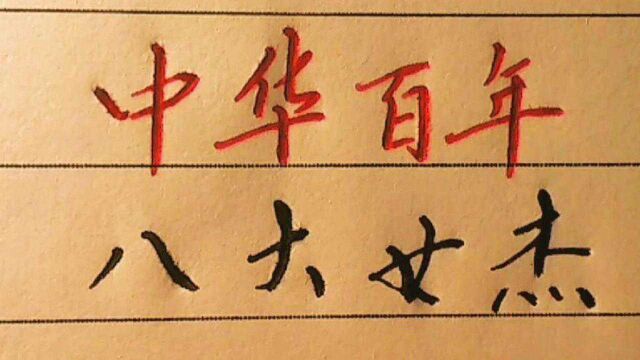 中华百年
八大女杰